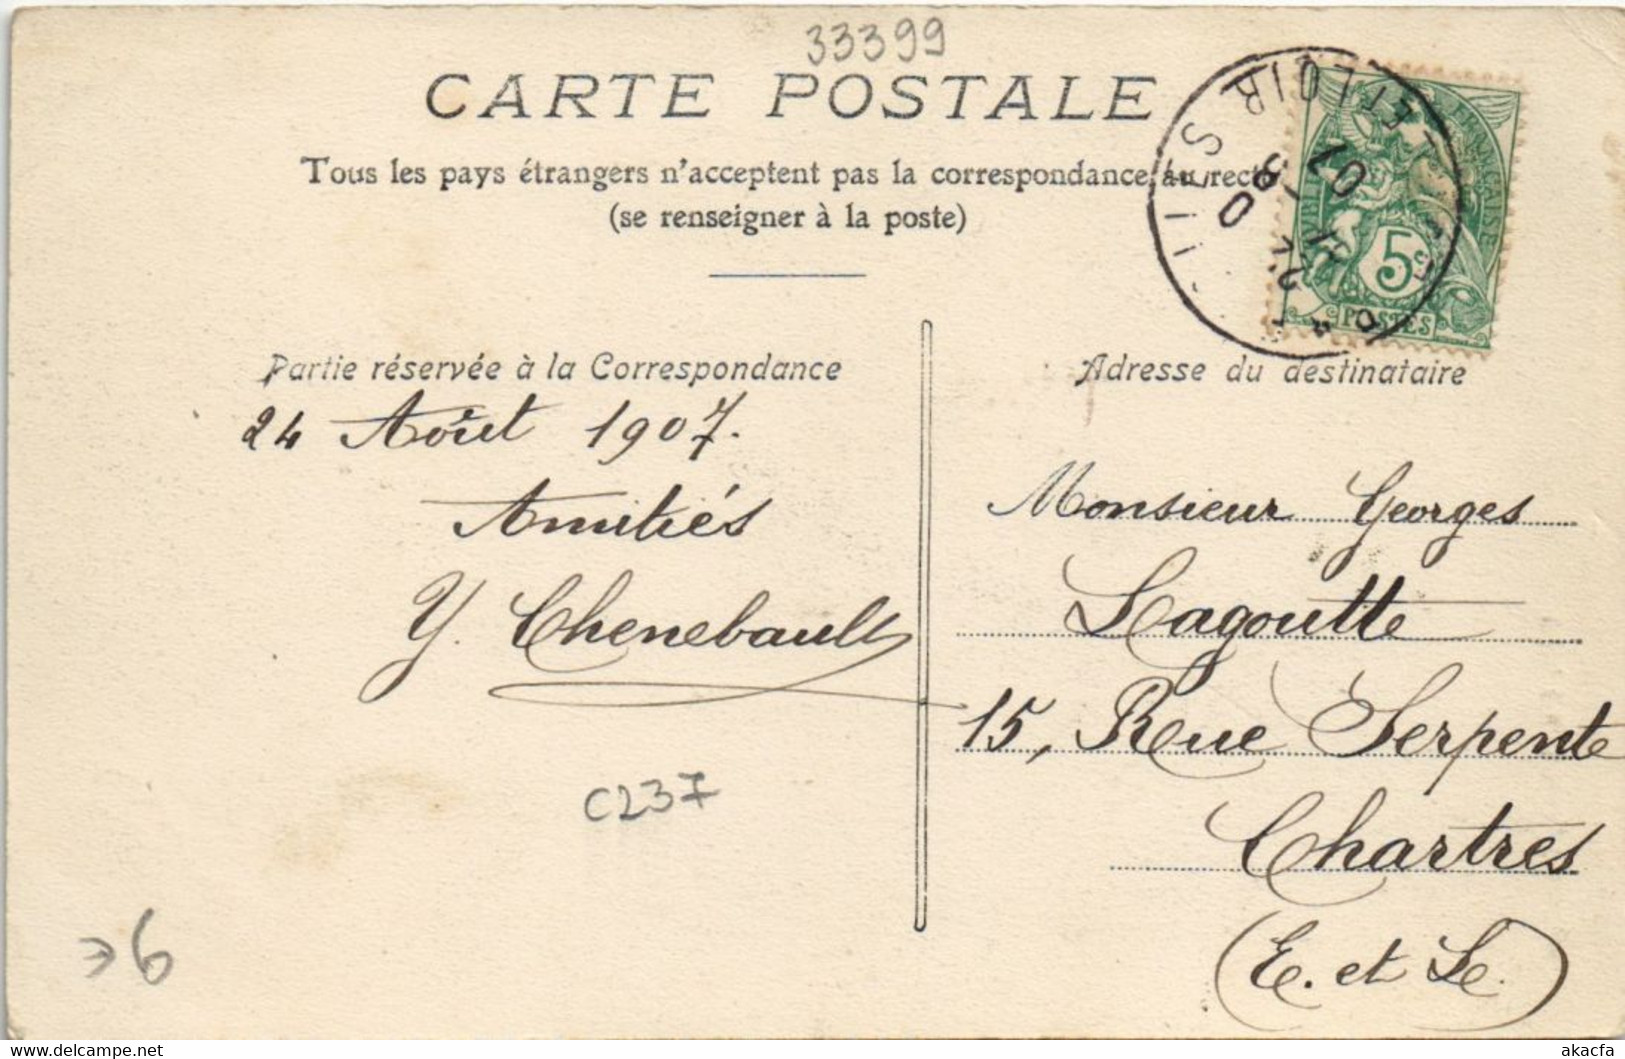 33399
CARTE POSTALE
Tous les pays étrangers n'acceptent pas la correspondance au recto
(se renseigner à la poste)
ET LOIR
07
5c
POSTES
Partie réservée à la Correspondance
24 Août 1907.
Amitiés
Y. Chenebault
C237
6
Adresse du destinataire
Monsieur Georges
Lagoutte
15, Rue Serpente
Chartres
(E. et L.)
akacfa